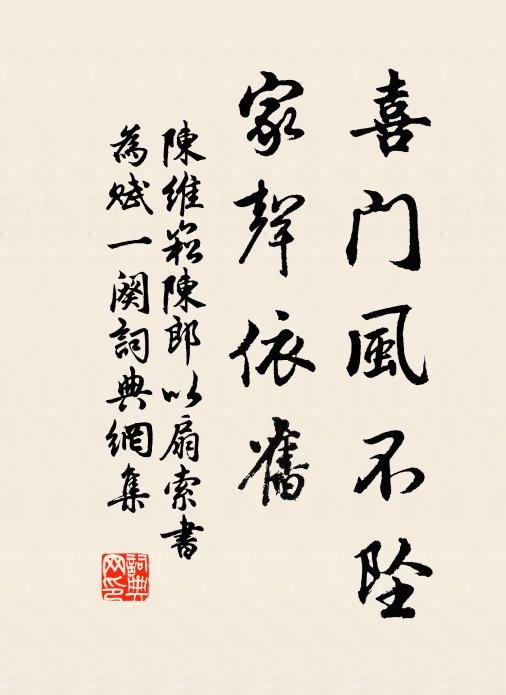 喜門風不坠
家聲依舊
陳維崧陳郎以扇索書
為赋一闋詞典網集
詞典
网印